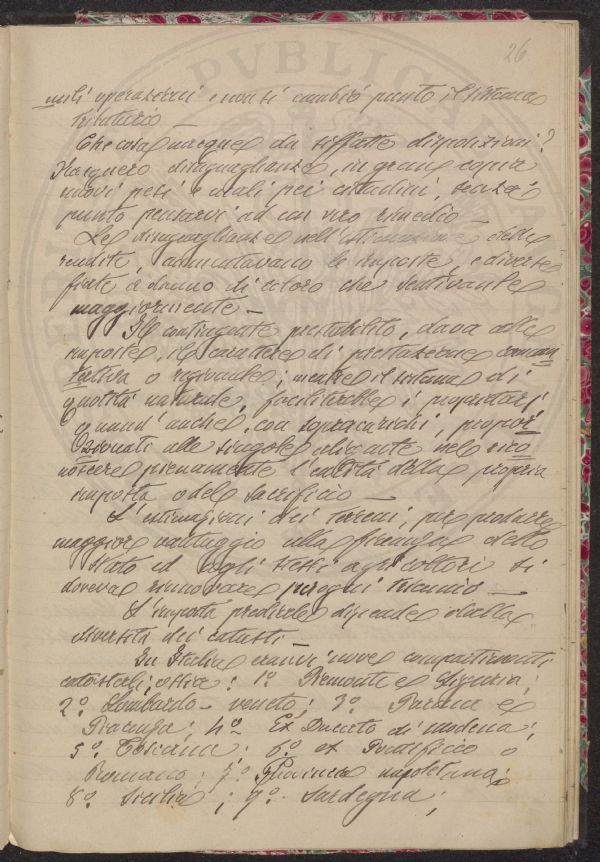 26
mili operazioni e non si cambiò punto il sistema
tributario —
Che cosa nacque da siffatte disposizioni?
Nacquero disuguaglianze, in gran copia
nuovi pesi e mali pei cittadini, senza
punto pensarvi ad un vero rimedio —
Le disuguaglianze nell'estimazione delle
rendite, aumentavano le imposte, e diverse
fiate a danno di coloro che sentivanle
maggiormente —
Il contingente prestabilito, dava alle
imposte, il carattere di prestazione
o ; mentre il sistema di
quotità naturale, i proprietarj
e quindi anche, con sopracarichi, propor
zionati alle singole nel rico
noscere pienamente l'entità della propria
imposta o del sacrificio —
L'estimazioni dei terreni, per produrre
maggiore vantaggio alla finanza dello
Stato ed agli stessi agricoltori si
doveva rinnovare per ogni triennio —
L'imposta prediale dipende dalla
diversità dei catasti —
In Italia eranvi nove compartimenti
catastali, ossia: 1º Piemonte e Liguria;
2º Lombardo-veneto; 3º Parma e
Piacenza; 4º Ex Ducato di Modena;
5º Toscana; 6º ex Pontificio o
Romano; 7º Provincia napoletana;
8º Sicilia; 9º Sardegna;